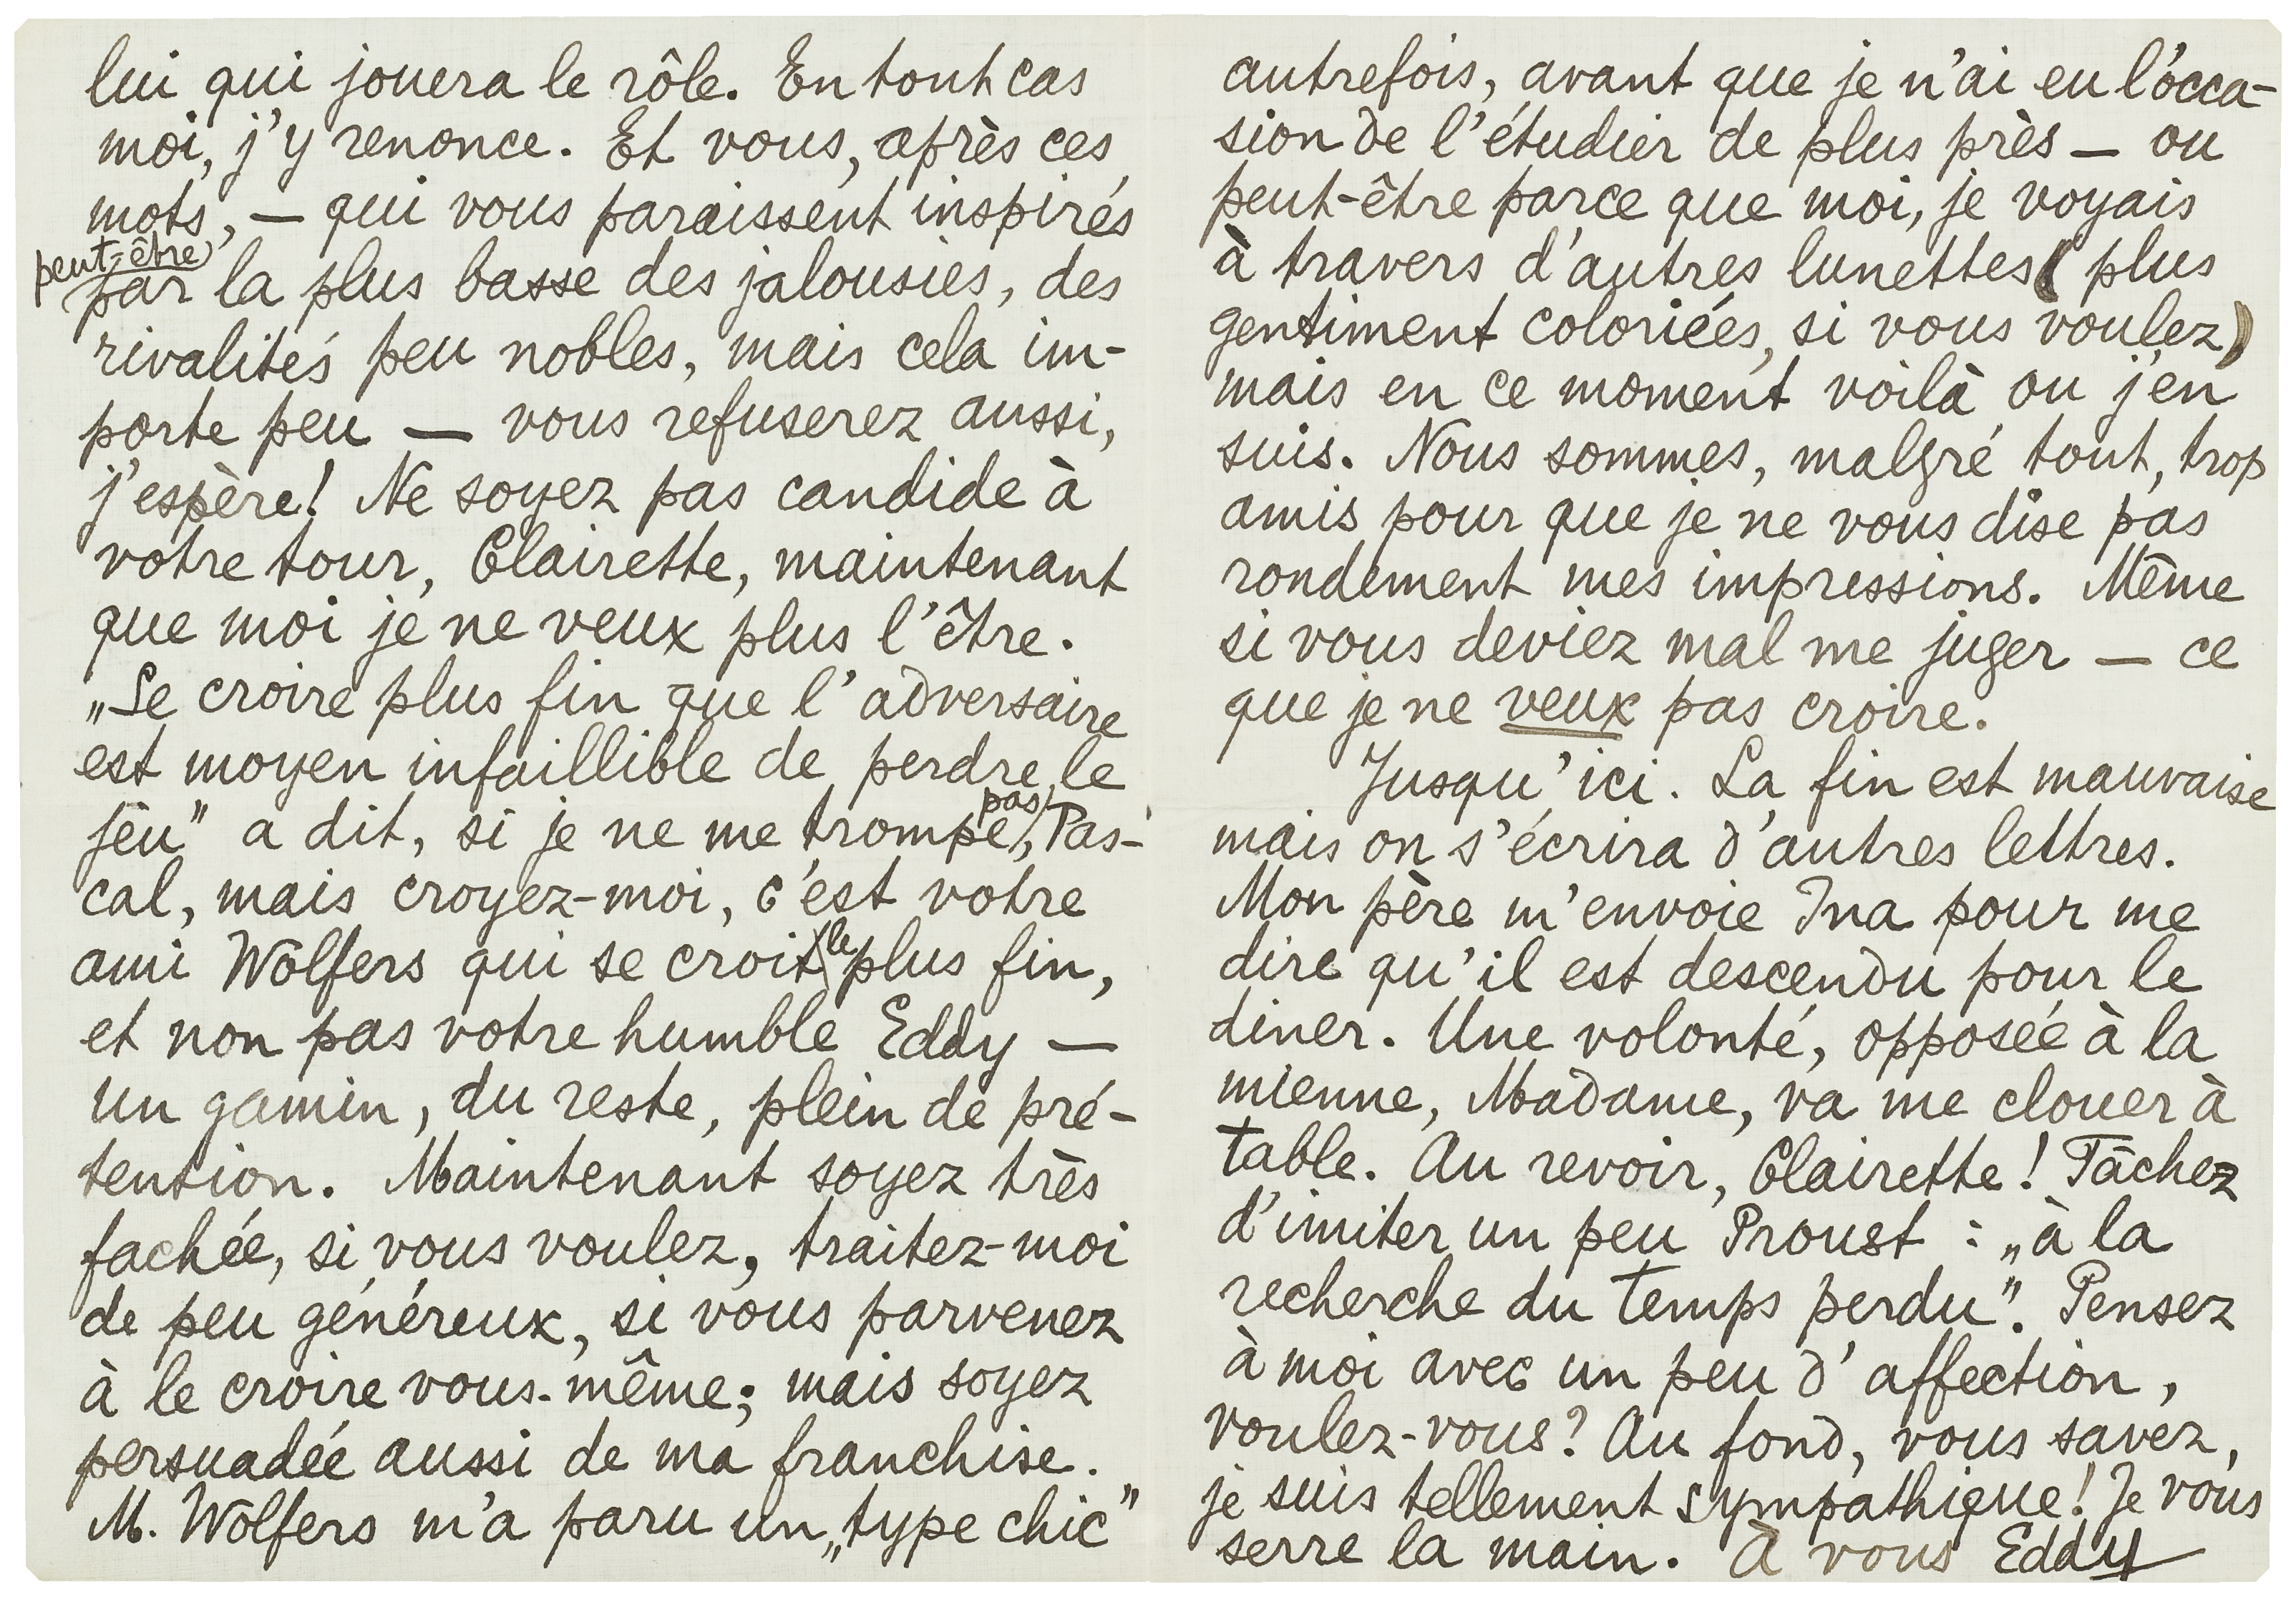 lui qui jouera le rôle. En tout cas
moi, j'y renonce. Et vous, après ces
mots, — qui vous paraissent inspirés
peut-être
par la plus basse des jalousies, des
rivalités peu nobles, mais cela im-
porte peu — vous refuserez aussi,
j'espère! Ne soyez pas candide à
votre tour, Clairette, maintenant
que moi je ne veux plus l'être.
„Se croire plus fin que l'adversaire
est moyen infaillible de perdre le
jeu" a dit, si je ne me trompe pas, Pas-
cal, mais croyez-moi, c'est votre
ami Wolfers qui se croit le plus fin,
et non pas votre humble Eddy —
un gamin, du reste, plein de pré-
tention. Maintenant soyez très
fachée, si vous voulez, traitez-moi
de peu généreux, si vous parvenez
à le croire vous-même; mais soyez
persuadée aussi de ma franchise.
M. Wolfers m'a paru un „type chic"
autrefois, avant que je n'ai eu l'occa-
sion de l'étudier de plus près — ou
peut-être parce que moi, je voyais
à travers d'autres lunettes (plus
gentiment coloriées, si vous voulez)
mais en ce moment voilà ou j'en
suis. Nous sommes, malgré tout, trop
amis pour que je ne vous dise pas
rondement mes impressions. Même
si vous deviez mal me juger — ce
que je ne veux pas croire.
Jusqu'ici. La fin est mauvaise
mais on s'écrira d'autres lettres.
Mon père m'envoie Ina pour me
dire qu'il est descendu pour le
diner. Une volonté, opposée à la
mienne, Madame, va me clouer à
table. Au revoir, Clairette! Tâchez
d'imiter un peu Proust : „à la
recherche du temps perdu". Pensez
à moi avec un peu d'affection,
voulez-vous? Au fond, vous savez,
je suis tellement sympathique! Je vous
serre la main. À vous Eddy